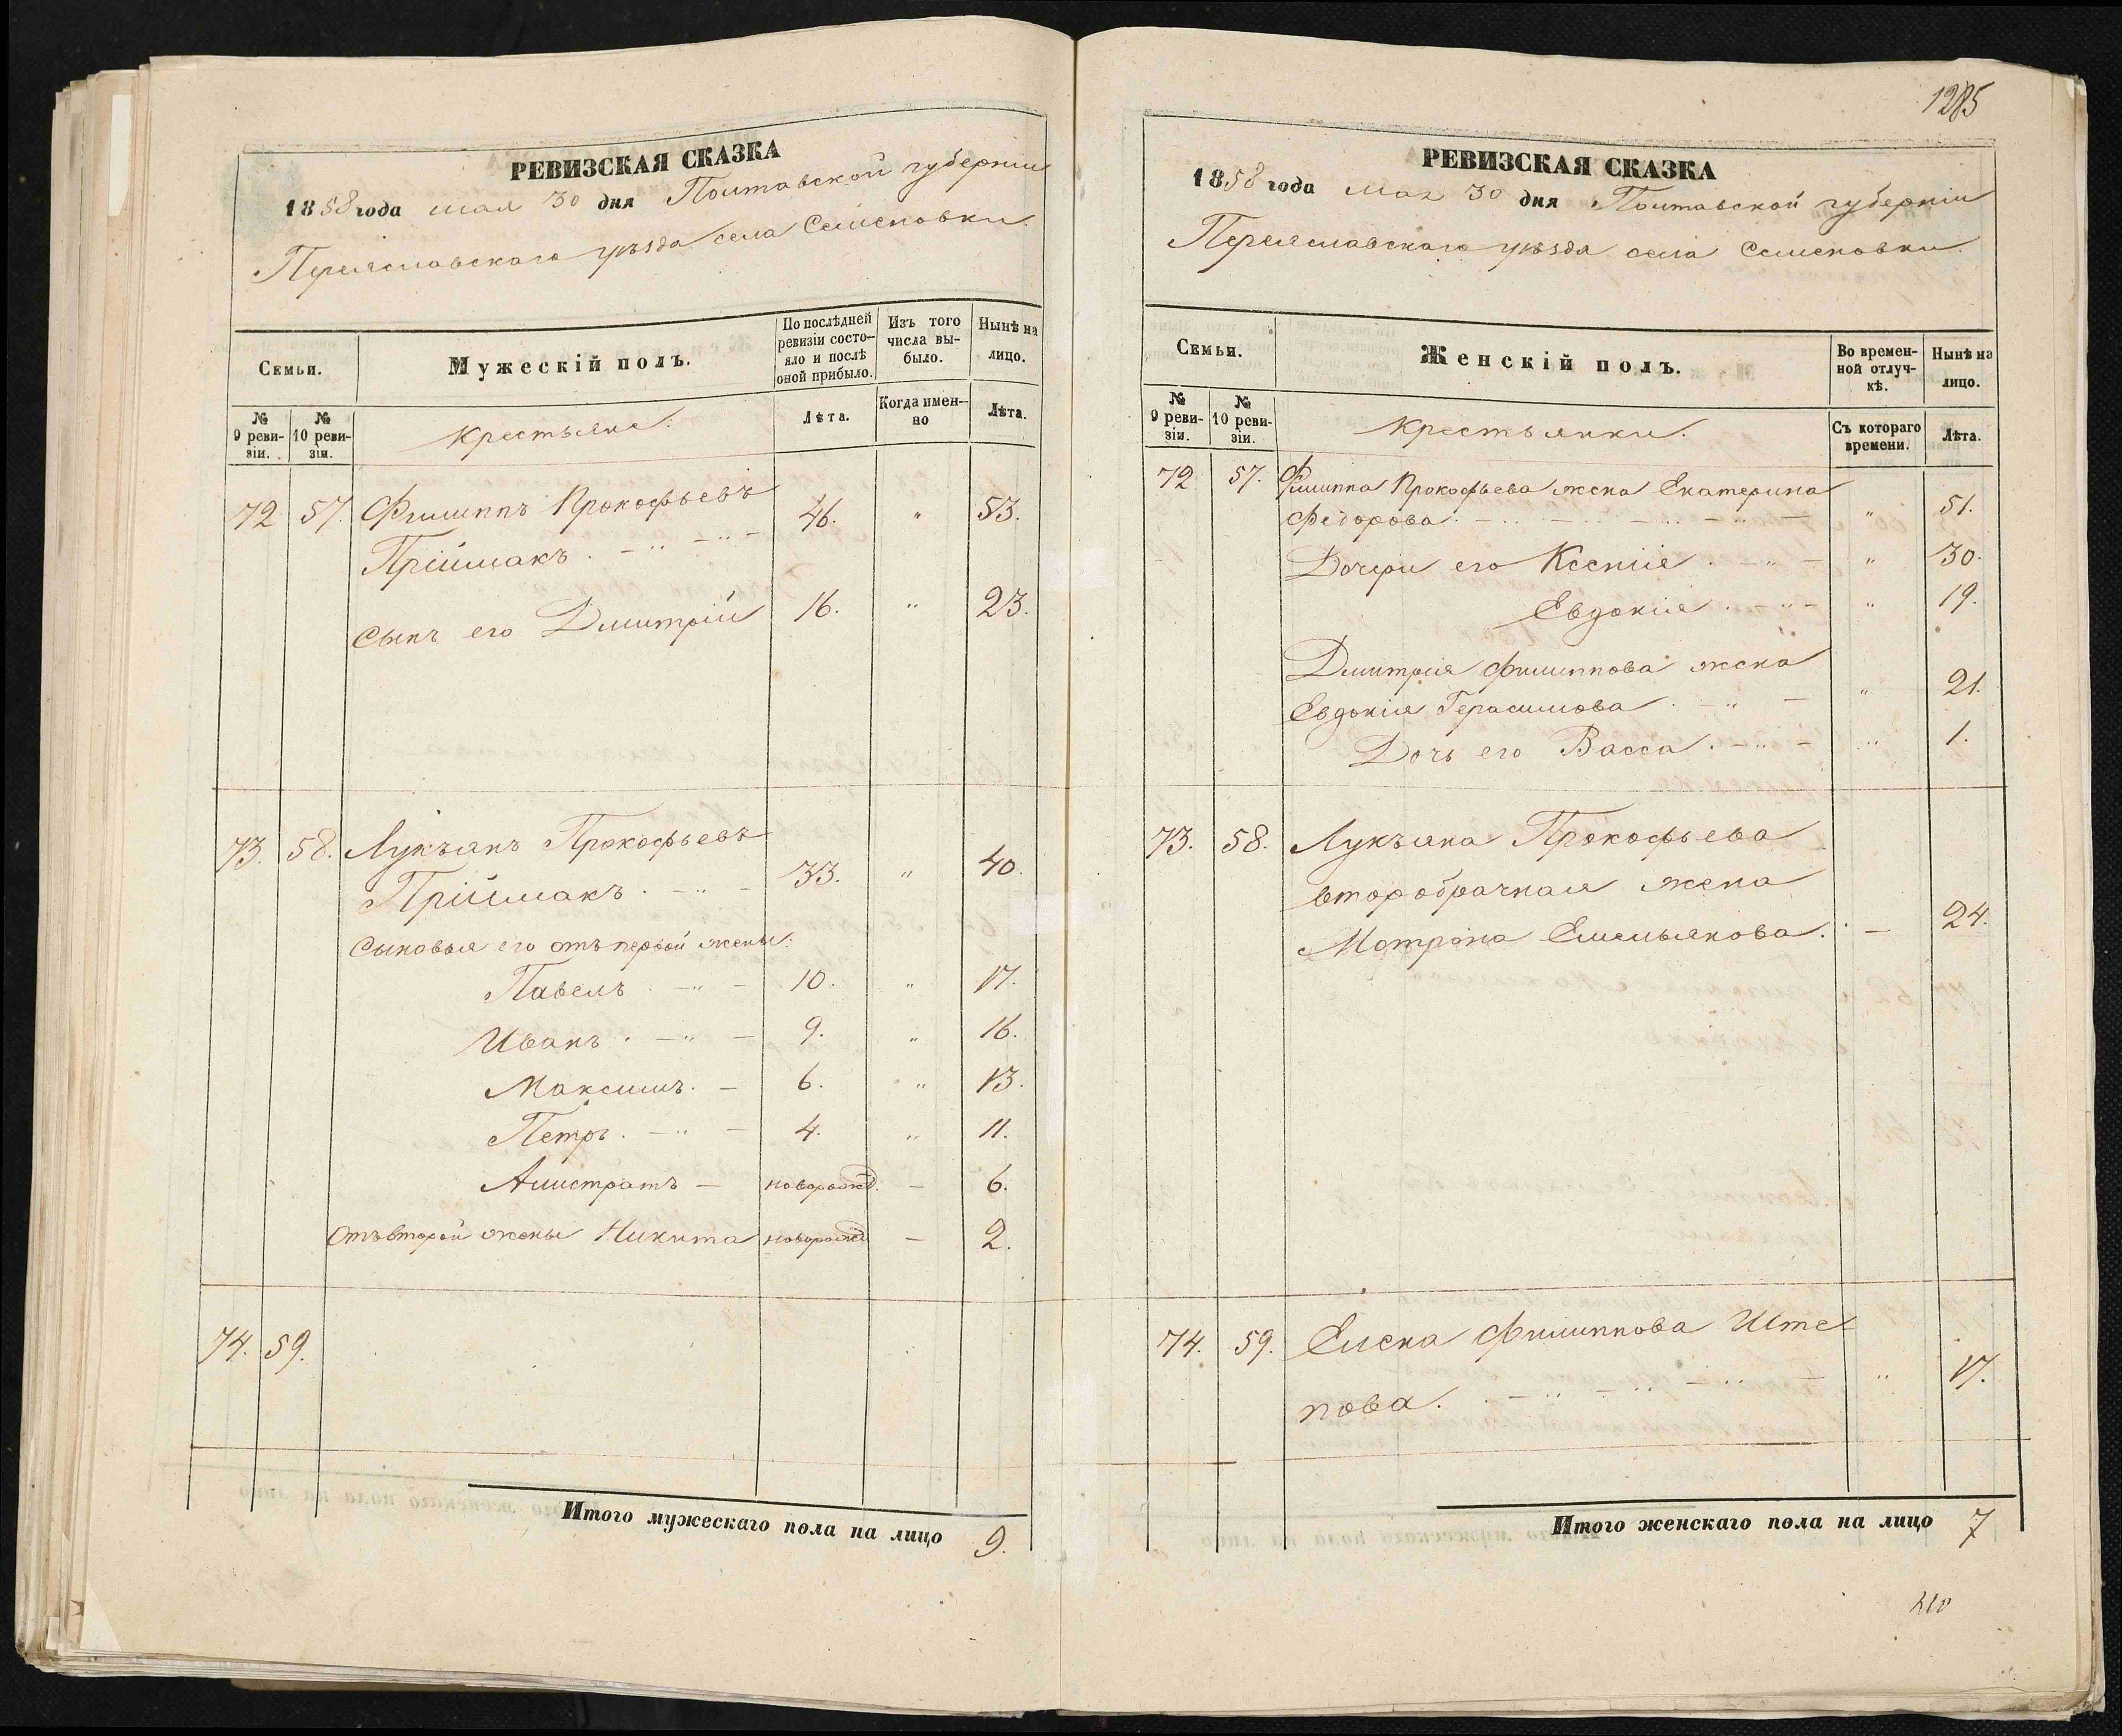 РЕВИЗСКАЯ СКАЗКА
1858 года мая 30 дня Полтавской губерніи
Переяславскаго уѣзда села Семеновки.
Семьи.
Мужескій полъ.
По послѣдней ревизіи состояло и послѣ оной прибыло.
Изъ того числа выбыло.
Нынѣ на лицо.
№ 9 ревизіи.
№ 10 ревизіи.
Крестьяне.
Лѣта.
Когда именно
Лѣта.
72 57. Филиппъ Прокофьевъ
Пріймакъ . - „ - „ - 46. „ 53.
Сынъ его Дмитрій 16. „ 23.
73. 58. Лукъянъ Прокофьевъ
Пріймакъ . - „ - 33. „ 40.
Сыновья его отъ первой жены:
Павелъ . - „ - 10. „ 17.
Иванъ . - „ - 9. „ 16.
Максимъ . - 6. „ 13.
Петръ . - „ - 4. „ 11.
Амистратъ - новорожд. - 6.
Отъ второй жены Никита новорожд - 2.
74. 59.
Итого мужескаго пола на лицо 9.
1285
РЕВИЗСКАЯ СКАЗКА
1858 года мая 30 дня Полтавской губерніи
Переяславскаго уѣзда села Семеновки.
Семьи.
Женскій полъ.
Во временной отлучкѣ.
Нынѣ на лицо.
№ 9 ревизіи.
№ 10 ревизіи.
Крестьянки.
Съ котораго времени.
Лѣта.
72 57. Филиппа Прокофьева жена Екатерина
Федорова . - „ - „ - „ - „ - „ 51.
Дочери его Ксенія . - „ - „ 30.
Евдокія . - „ - „ 19.
Дмитрія Филиппова жена
Евдокія Герасимова . - „ - „ 21.
Дочь его Васса . - „ - „ 1.
73. 58. Лукъяна Прокофьева
второбрачная жена
Мотрона Емельянова . - 24.
74. 59. Елена ФилипповаШте-
пова . . - „ - „ - „ - „ 17.
Итого женскаго пола на лицо 7